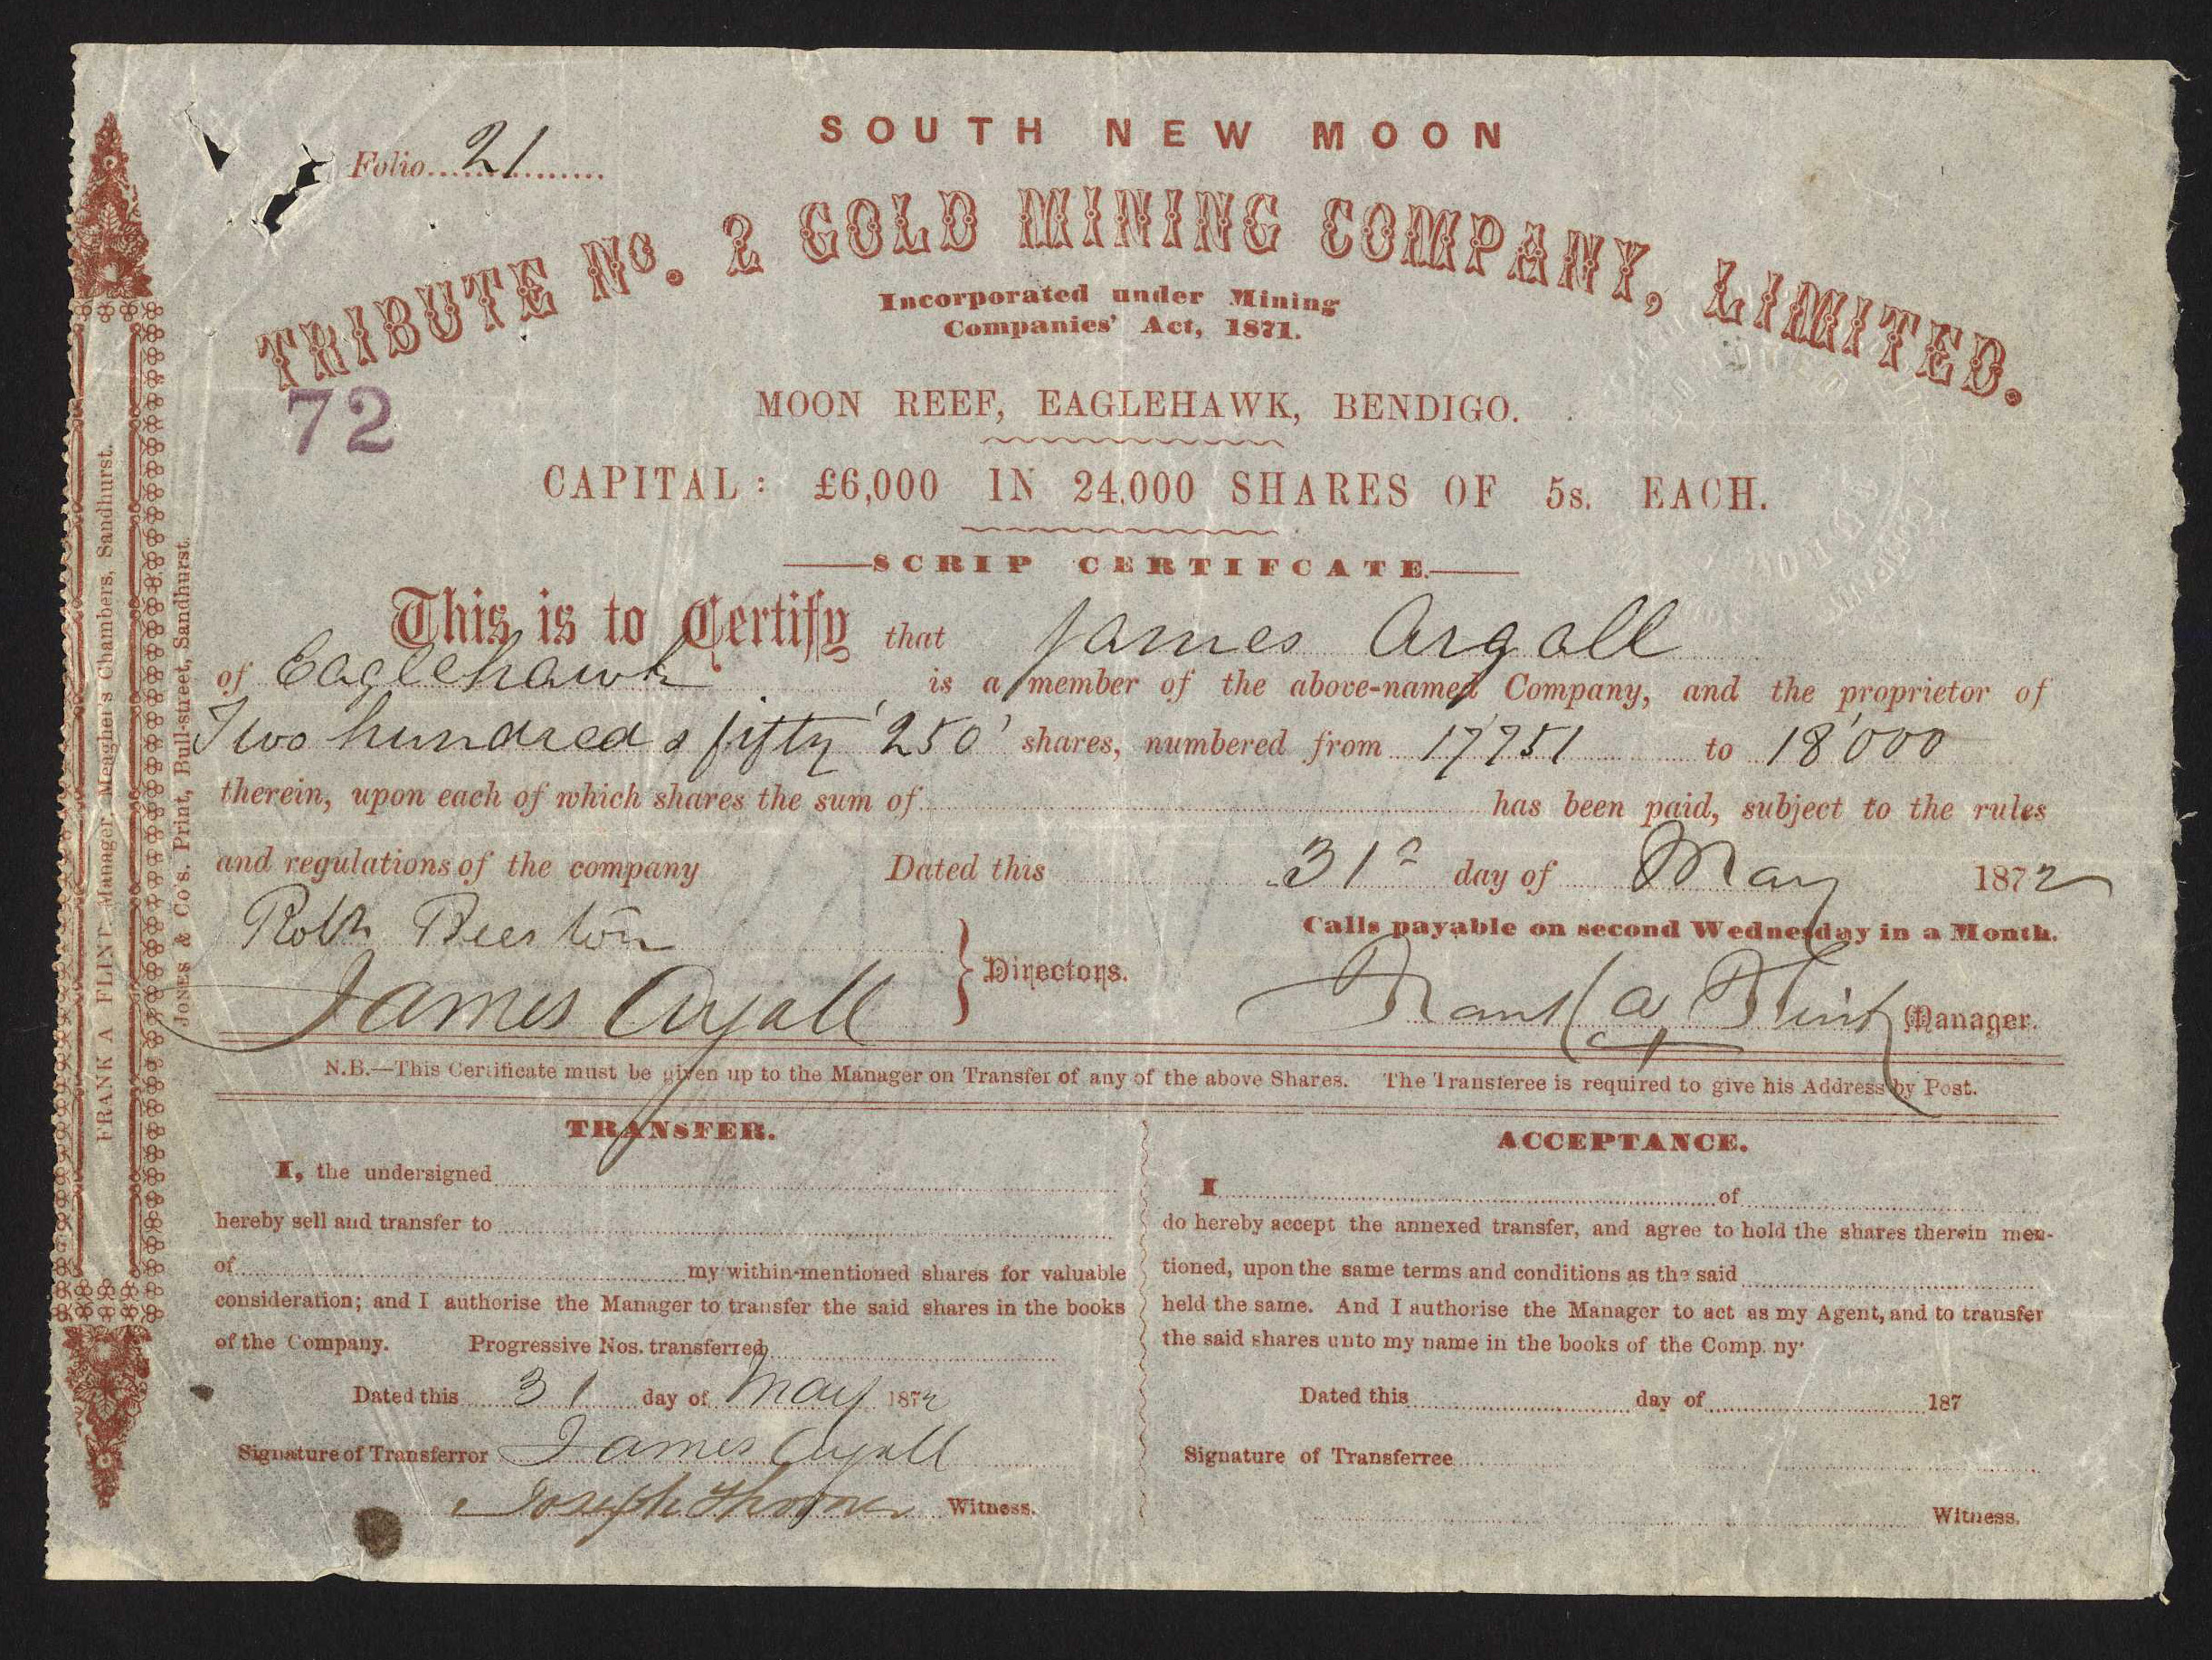 Folio 21
SOUTH NEW MOON
TRIBUTE No. 2 GOLD MINING COMPANY, LIMITED.
Incorporated under Mining
Companies' Act, 1871.
72
MOON REEF, EAGLEHAWK, BENDIGO.
CAPITAL: £6,000 IN 24,000 SHARES OF 5s. EACH.
SCRIP CERTIFCATE.
This is to Certify that James Argall
of Eaglehawk is a member of the above-named Company, and the proprietor of
Two hundred & fifty '250' shares, numbered from 17751 to 18'000
therein, upon each of which shares the sum of has been paid, subject to the rules
and regulations of the company Dated this 31s day of May 1872
Calls payable on second Wednesday in a Month.
Robt Beeston
James Argall
Directors.
Frank A Flint Manager.
N.B.—This Certificate must be given up to the Manager on Transfer of any of the above Shares. The Transferee is required to give his Address by Post.
TRANSFER.
I, the undersigned
hereby sell and transfer to
of my within-mentioned shares for valuable
consideration; and I authorise the Manager to transfer the said shares in the books
of the Company. Progressive Nos. transferred
Dated this 31 day of May 1872
Signature of Transferror James Argall
Joseph Witness.
ACCEPTANCE.
I of
do hereby accept the annexed transfer, and agree to hold the shares therein men-
tioned, upon the same terms and conditions as the said
held the same. And I authorise the Manager to act as my Agent, and to transfer
the said shares unto my name in the books of the Comp ny.
Dated this day of 187
Signature of Transferree
Witness.
FRANK A FLINT Manager, Meagher's Chambers, Sandhurst.
JONES & Co's. Print, Bull-street, Sandhurst.